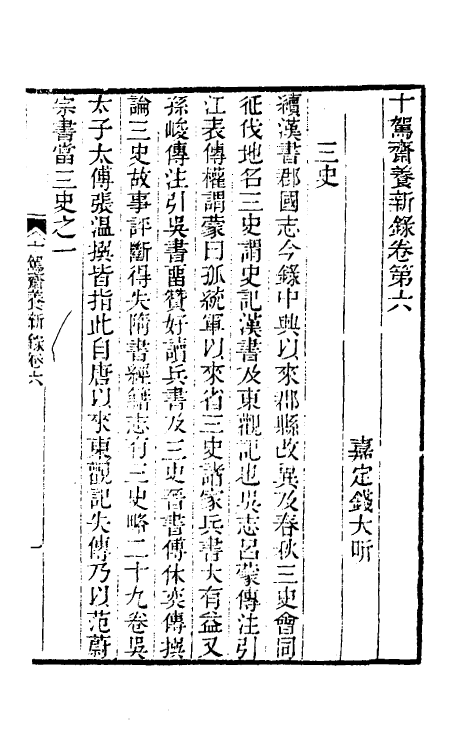 十駕齋養新錄卷第六
嘉定錢大昕
三史
續漢書郡國志今錄中興以來郡縣改異及春秋三史會同
征伐地名三史謂史記漢書及東觀記也吳志呂蒙傳注引
江表傳權謂蒙曰孤統軍以來省三史諸家兵書大有益又
孫峻傳注引吳書畱贊好讀兵書及三史晉書傅休奕傳撰
論三史故事評斷得失隋書經籍志有三史略二十九卷吳
太子太傅張溫撰皆指此自唐以來東觀記失傳乃以范蔚
宗書當三史之一
十駕齋養新錄卷六
一